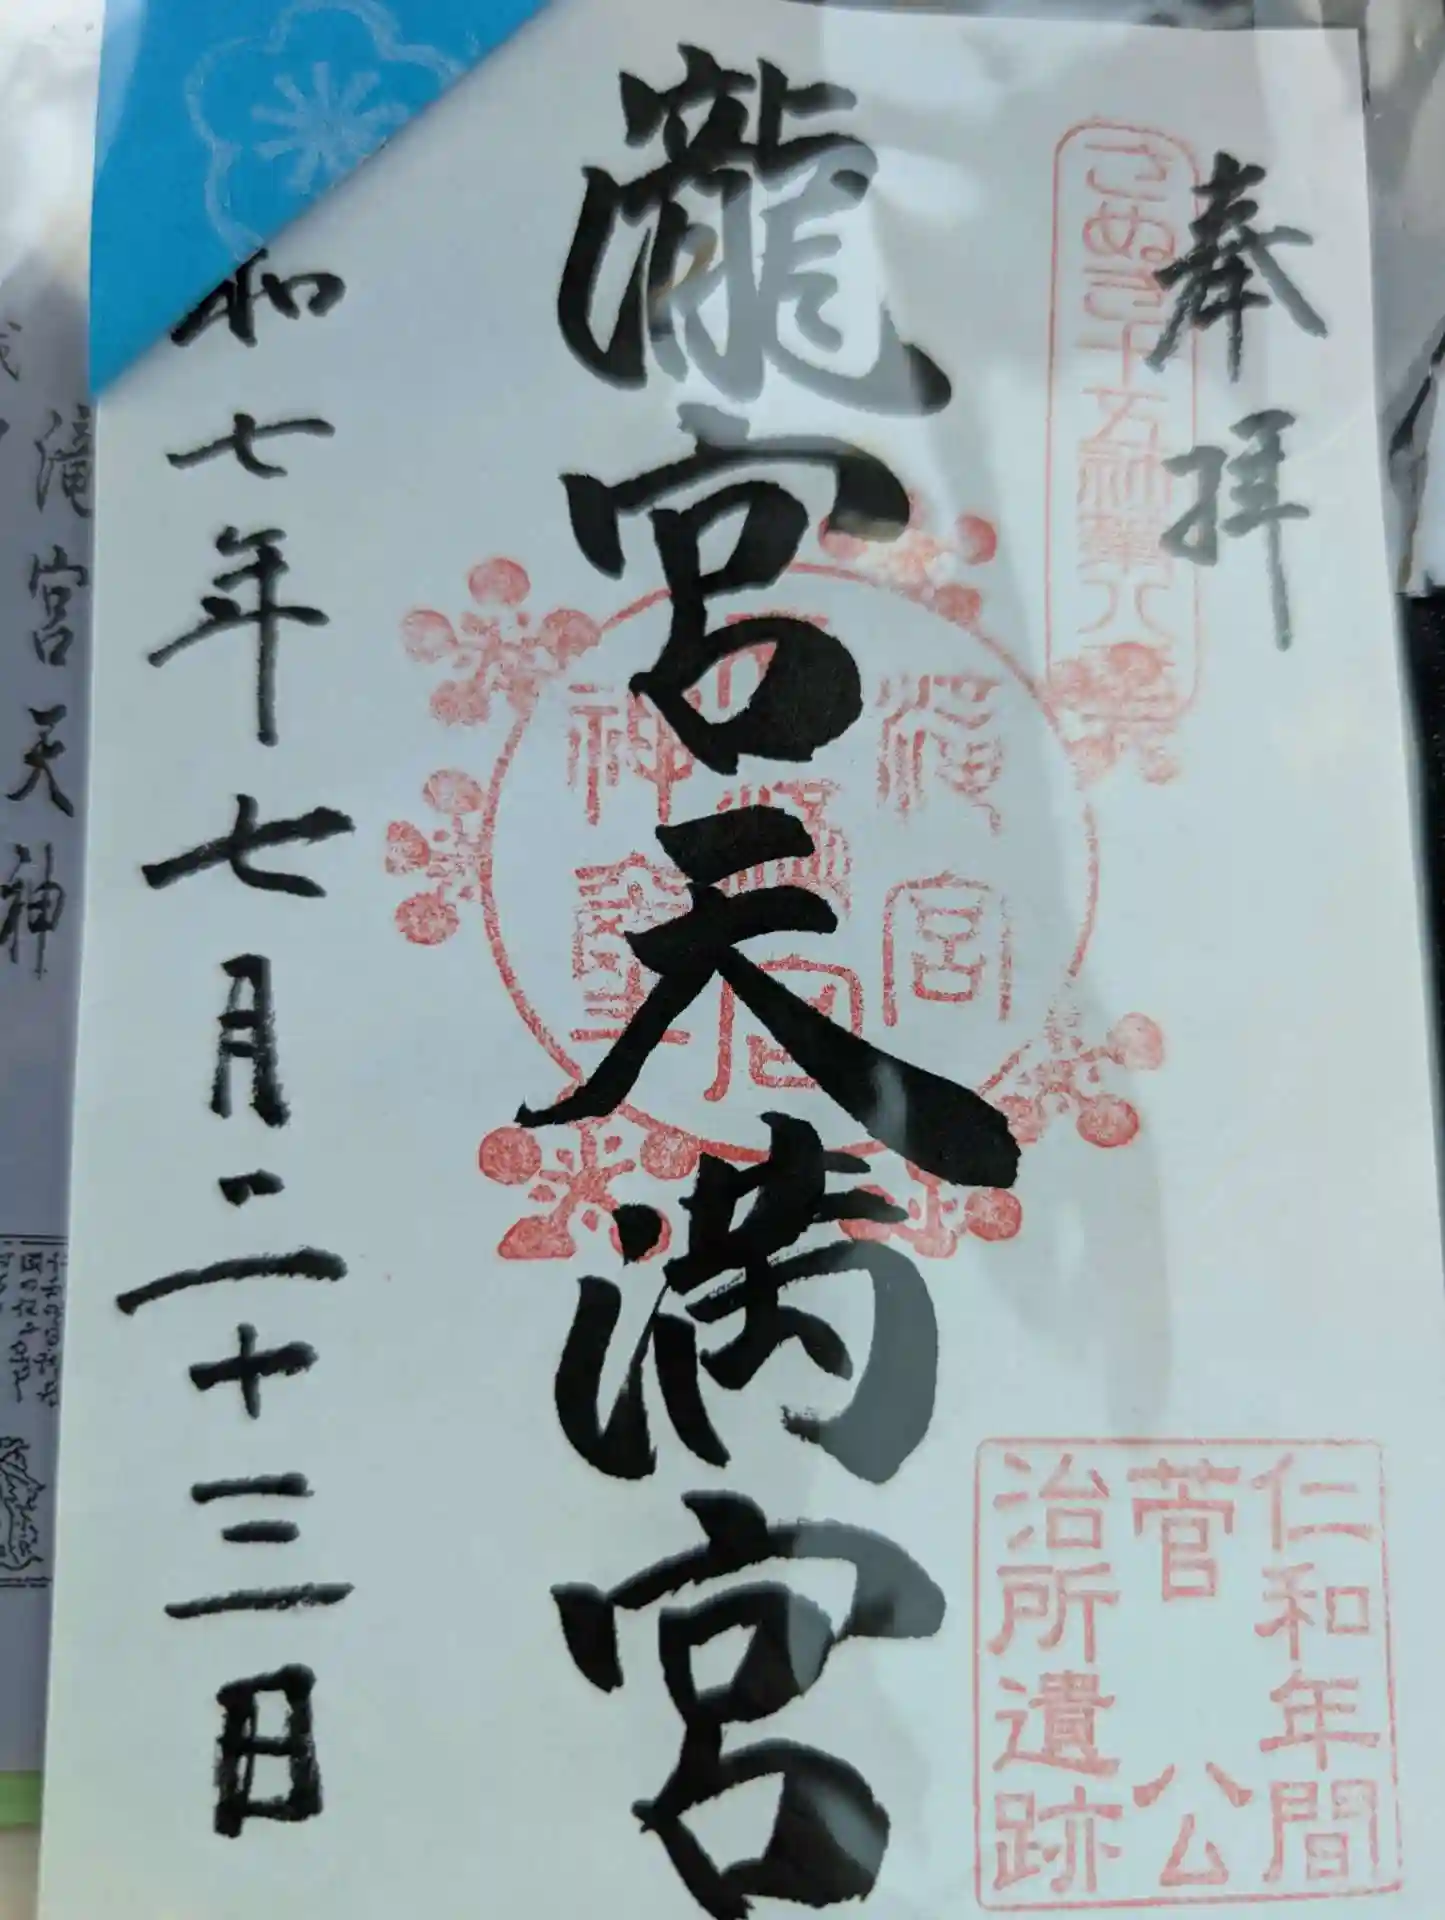 奉拝
さぬき十五社第八
瀧宮天満宮
滝宮
神璽
仁和年間
菅公
治所遺跡
和七年七月二十三日
滝宮天神